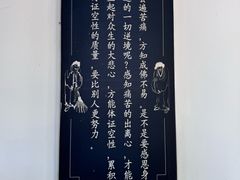 遍苦痛，方知成佛不易，是不是要感恩身
的一切逆境呢？感知痛苦的出离心，才能
起对众生的大悲心，方能体证空性，累积
证空性的质量，要比别人更努力。